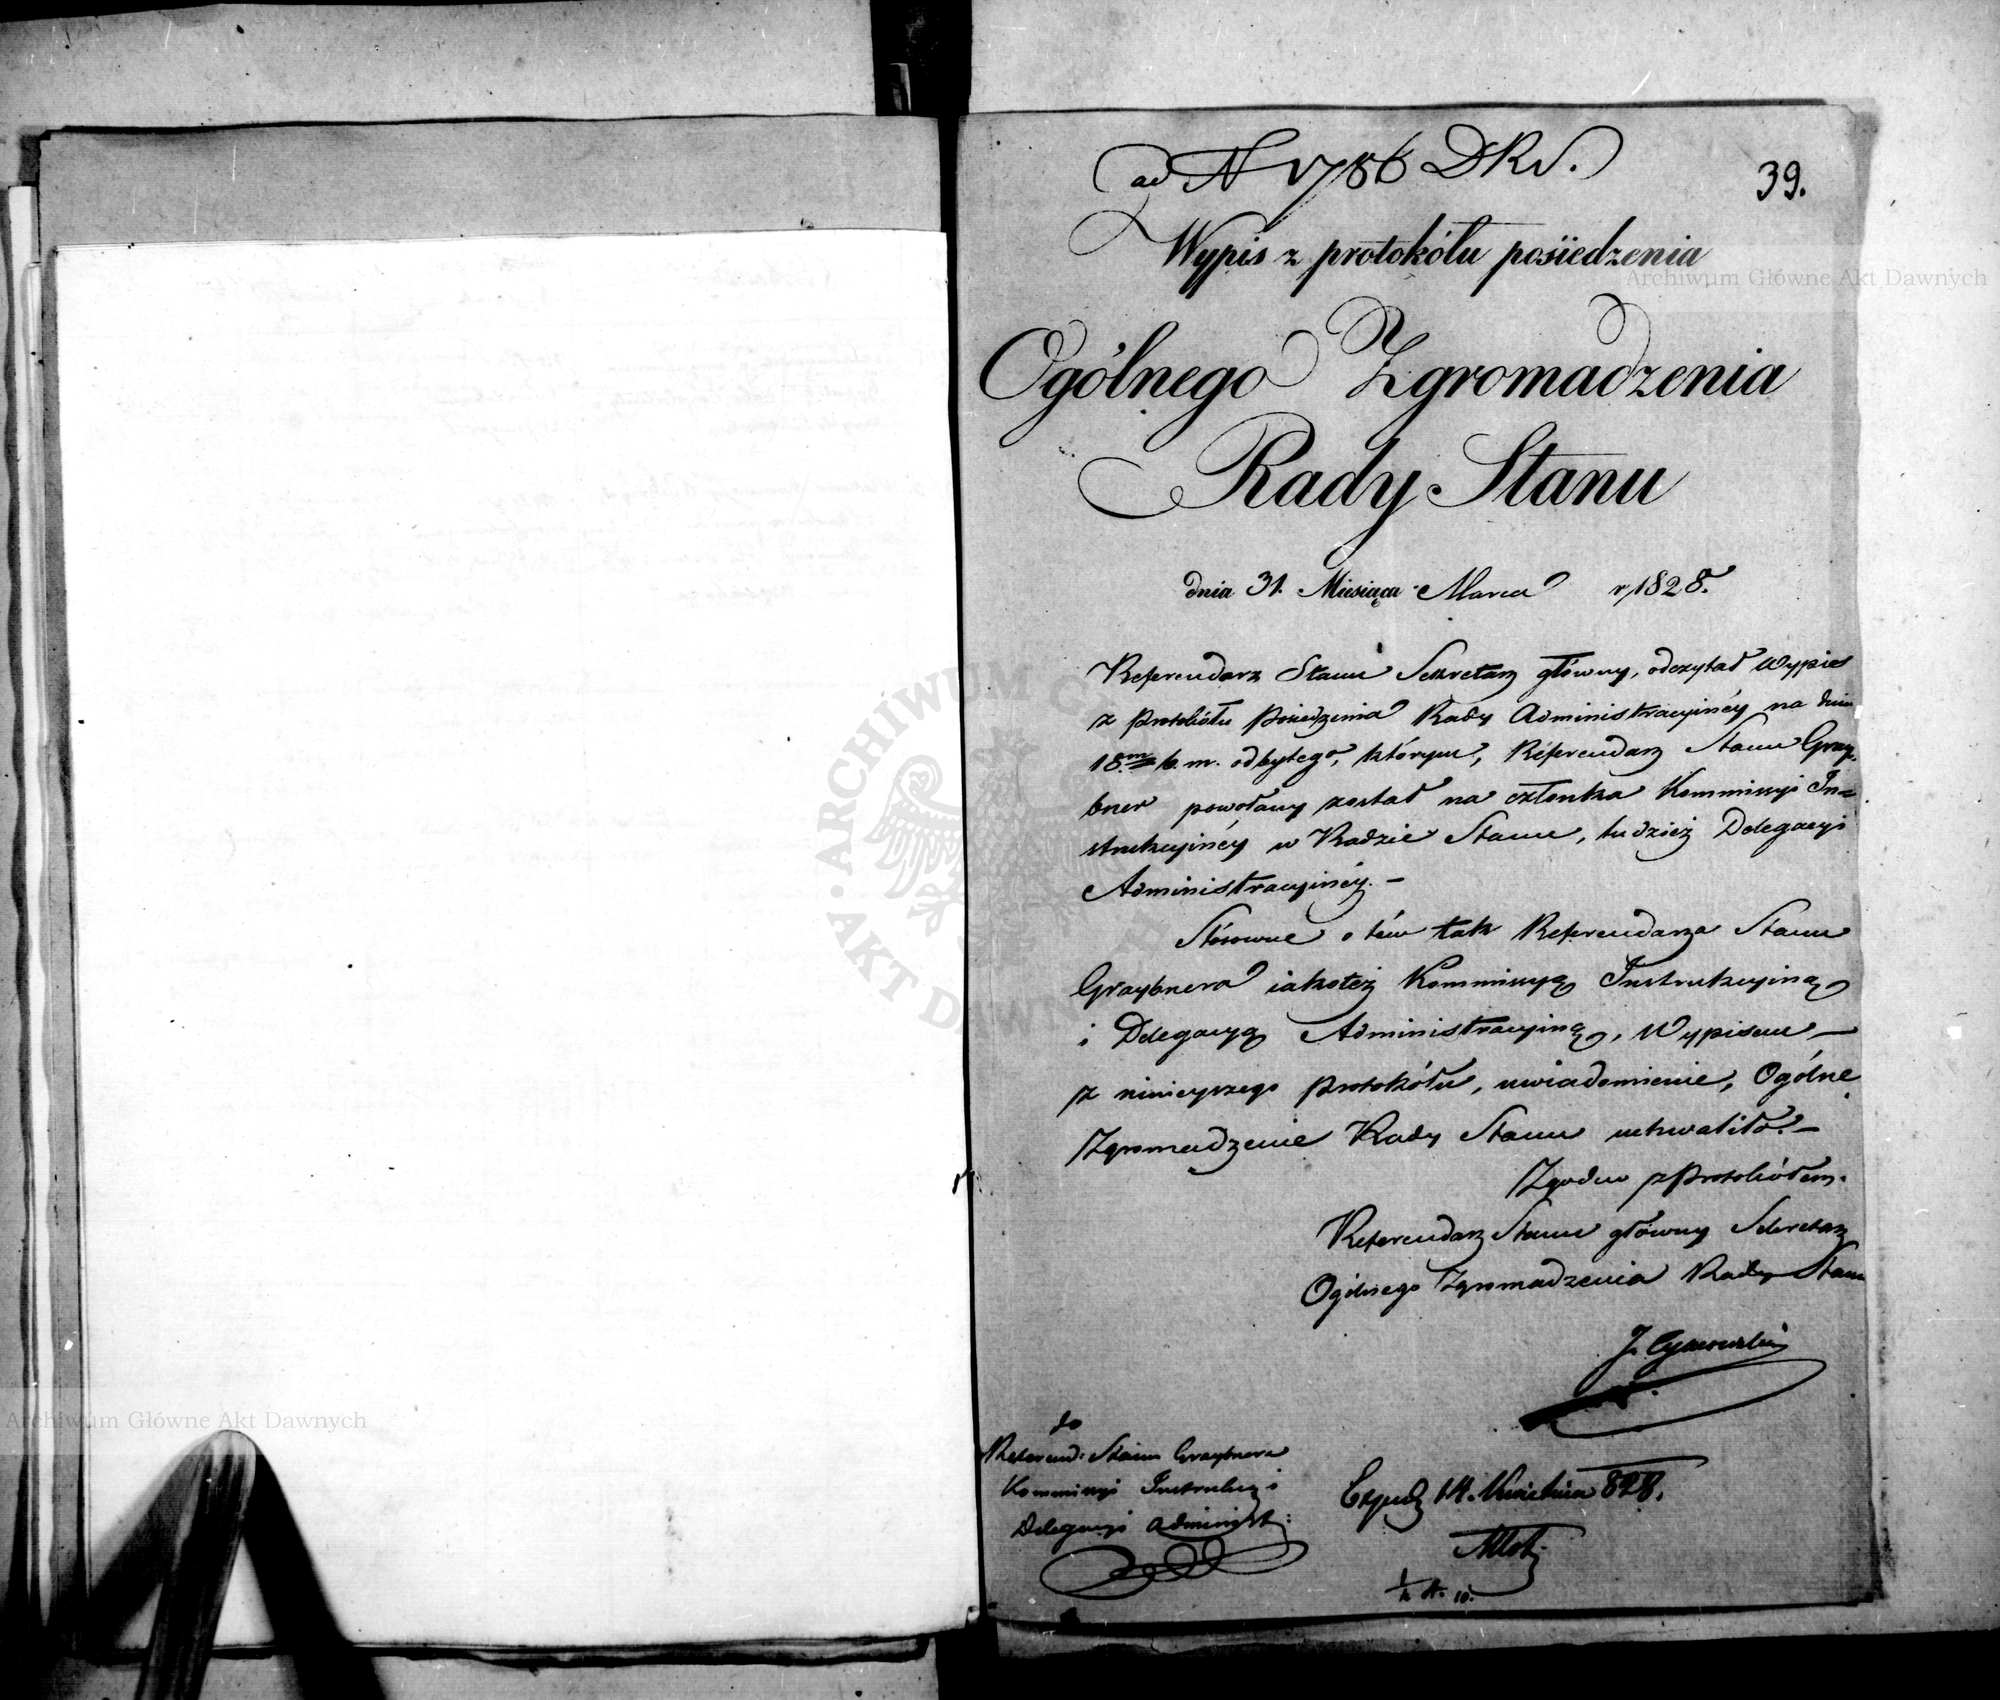 ad N 1786 DRS.
39.
Wypis z protokółu posiedzenia
Ogólnego Zgromadzenia
Rady Stanu
dnia 31. Miesiąca Marca r. 1828.
Referendarz Stanu Sekretarz główny, odczytał Wypis
z protokółu posiedzenia Rady Administracyinéy na dniu
18.m b. m. odbytego, którym, Referendarz Stanu Gray-
bner powołany został na członka Kommissyi In=
strukcyinéy w Radzie Stanu, tudzież Delegacyi
Administracyinéy. –
Stósowne o tém tak Referendarza Stanu
Graybnera iakoteż Kommissyą Instrukcyiną
i Delegacyą Administracyiną, Wypisem —
z ninieyszego protokółu, uwiadomienie, Ogólne
Zgromadzenie Rady Stanu uchwaliło. –
Zgodno z Protokółem.
Referendarz Stanu główny Sekretarz
Ogólnego Zgromadzenia Rady Stanu
J.
do
Referend: Stanu Graybnera
Kommissyi Instrukcy: i
Delegacyi Administ:
Exped 14. Kwietnia 828.
Archiwum Główne Akt Dawnych
Archiwum Główne Akt Dawnych
ARCHIWUM G
AKT DAWNYCH